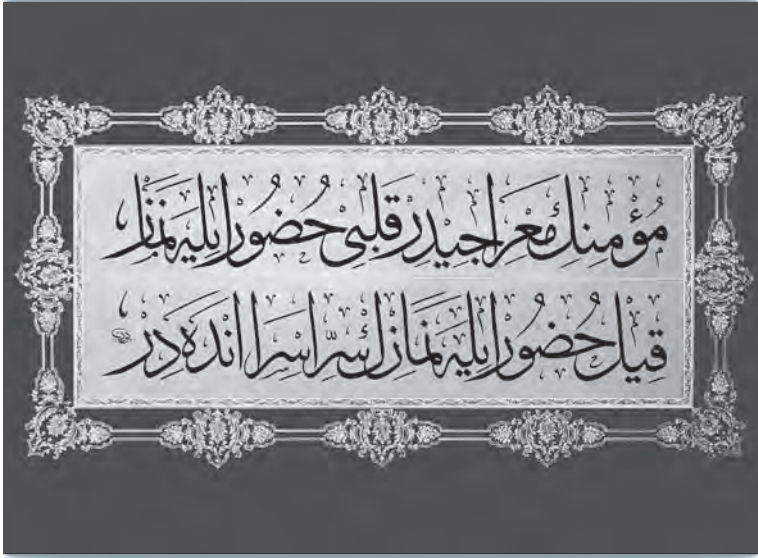 مؤمنك معراجيدر قلبى حضور ايله نماز
قيل حضور ايله نمازك سرّ اسرا انده در